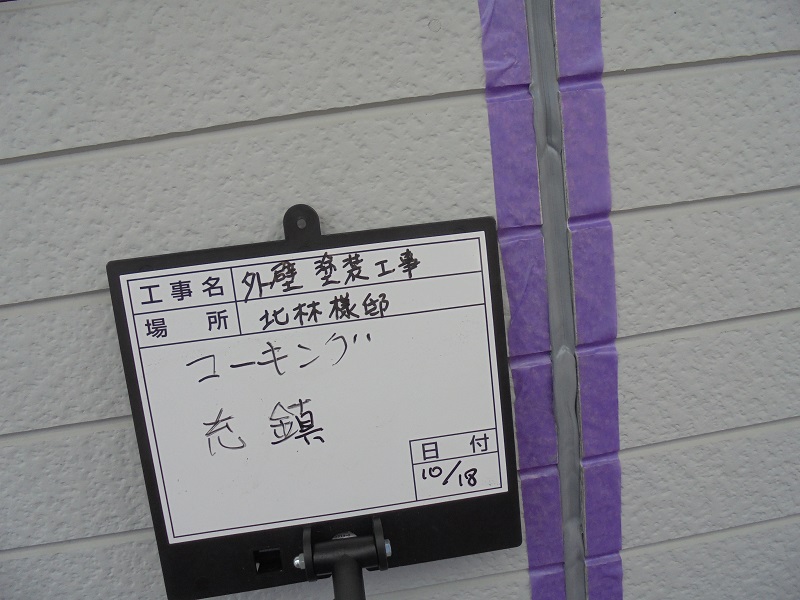 工事名 外壁 塗装工事
場所 北林様邸
コーキング
充鎮
日付
10/18